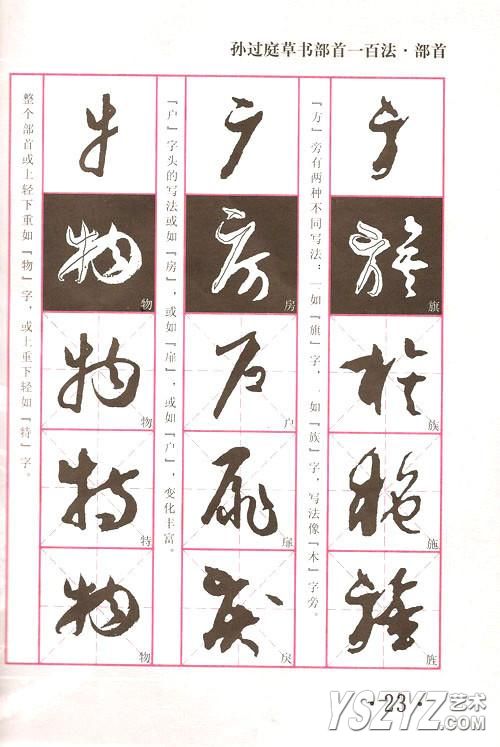 孙过庭草书部首一百法·部首
旗
族
施
旌
「方」旁有两种不同写法：一如「旗」字，一如「族」字，写法像「木」字旁。
房
户
扉
戾
「户」字头的写法或如「房」，或如「扉」，或如「户」，变化丰富。
物
物
特
物
整个部首或上轻下重如「物」字，或上重下轻如「特」字。
·23·
YSZYZ艺术
.com